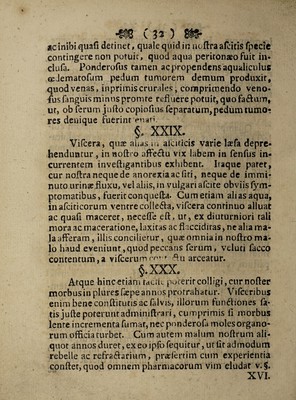 (32)
ac inibi quasi detinet, quale quid in nostra ascitis specie
contingere non potuit, quod aqua peritonæo fuit in-
clusa. Ponderosus tamen ac propendens aqualiculus
œdematosum pedum tumorem demum produxit,
quod venas, inprimis crurales, comprimendo veno-
sus sanguis minus promte refluere potuit, quo factum,
ut, ob serum justo copiosius separatum, pedum tumo-
res denique fuerint enati.
§. XXIX.
Viscera, quæ alias in asciticis varie læsa depre-
henduntur, in nostro affectu vix labem in sensus in-
currentem investigantibus exhibent. Itaque patet,
cur nostra neque de anorexia ac siti, neque de immi-
nuto urinæ fluxu, vel aliis, in vulgari ascite obviis sym-
ptomatibus, fuerit conquesta. Cum etiam alias aqua,
in asciticorum ventre collecta, viscera continuo alluat
ac quasi maceret, necesse est, ut, ex diuturniori tali
mora ac maceratione, laxitas ac flaccidiras, ne alia ma-
la afferam, illis concilietur, quæ omnia in nostro ma-
lo haud eveniunt, quod peccans serum, veluti sacco
contentum, a viscerum arceatur.
§. XXX.
Atque hinc etiam facile poterit colligi, cur noster
morbus in plures sæpe annos protrahatur. Visceribus
enim bene constitutis ac salvis, illorum functiones sa-
tis juste poterunt administrari, cumprimis si morbus
lente incrementa sumat, nec ponderosa moles organo-
rum officia turbet. Cum autem malum nostrum ali-
quot annos duret, ex eo ipso sequitur, ut sit admodum
rebelle ac refractarium, præsertim cum experientia
constet, quod omnem pharmacorum vim eludat v. §.
XVI.